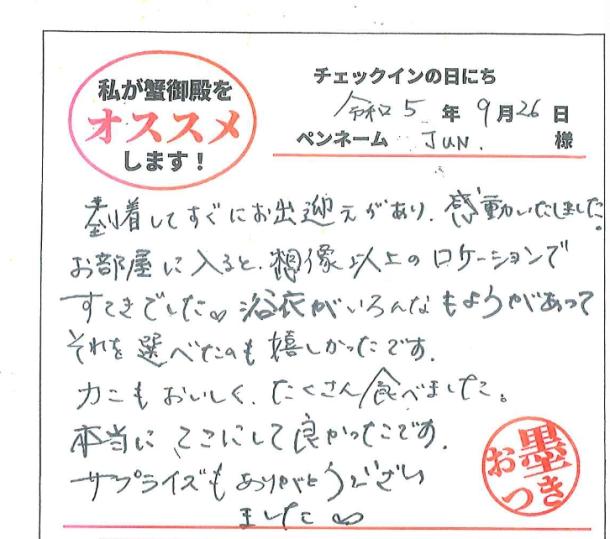 私が蟹御殿を
オススメ
します！
チェックインの日にち
令和5年9月26日
ペンネーム JUN. 様
到着してすぐにお出迎えがあり、感動いたしました。
お部屋に入ると、想像以上のロケーションで
すてきでした♡ 浴衣がいろんなもようがあって
それを選べたのも嬉しかったです。
カニもおいしく、たくさん食べました。
本当に、ここにして良かったです。
サプライズもありがとうござい
ました♡
お墨つき